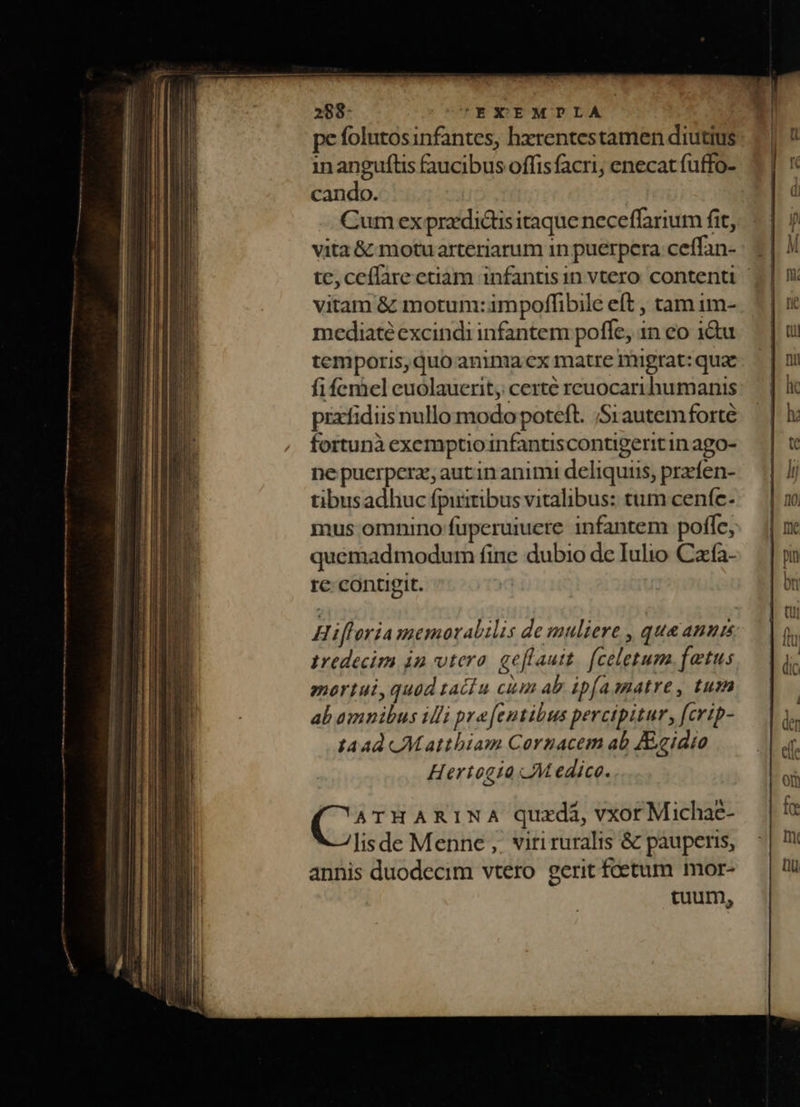 288 EXEMPLA
pe ſolutos infantes, hærentes tamen diutius
in anguſtis faucibus oſſis ſacri, enecat ſuffo-
cando.
Cum ex prædictis itaque neceſſarium fit,
vita & motu arteriarum in puerpera ceſſan-
te, ceſſare etiam infantis in vtero contenti
vitam & motum: impoſſibile eſt, tam im-
mediatè excindi infantem poſſe, in eo ictu
temporis, quo anima ex matre migrat: quæ
ſi ſemel euolauerit, certè reuocari humanis
præſidiis nullo modo poteſt. Si autem fortè
fortunà exemptio infantis contigerit in ago-
ne puerperæ, aut in animi deliquiis, præſen-
tibus adhuc ſpiritibus vitalibus: tum cenſe-
mus omnino ſuperuiuere infantem poſſe,
quemadmodum ſine dubio de Iulio Cæſa-
re contigit.
Hiſtoria memorabilis de muliere, quæ annis
tredecim in vtero geſtauit ſceletum fœtus
mortui, quod tactu cum ab ipſa matre, tum
ab omnibus illi præſentibus percipitur, ſcrip-
ta ad Matthiam Cornacem ab Ægidio
Hertogio Medico.
CATHARINA quædā, vxor Michaë-
lis de Menne, viri ruralis & pauperis,
annis duodecim vtero gerit fœtum mor-
tuum,